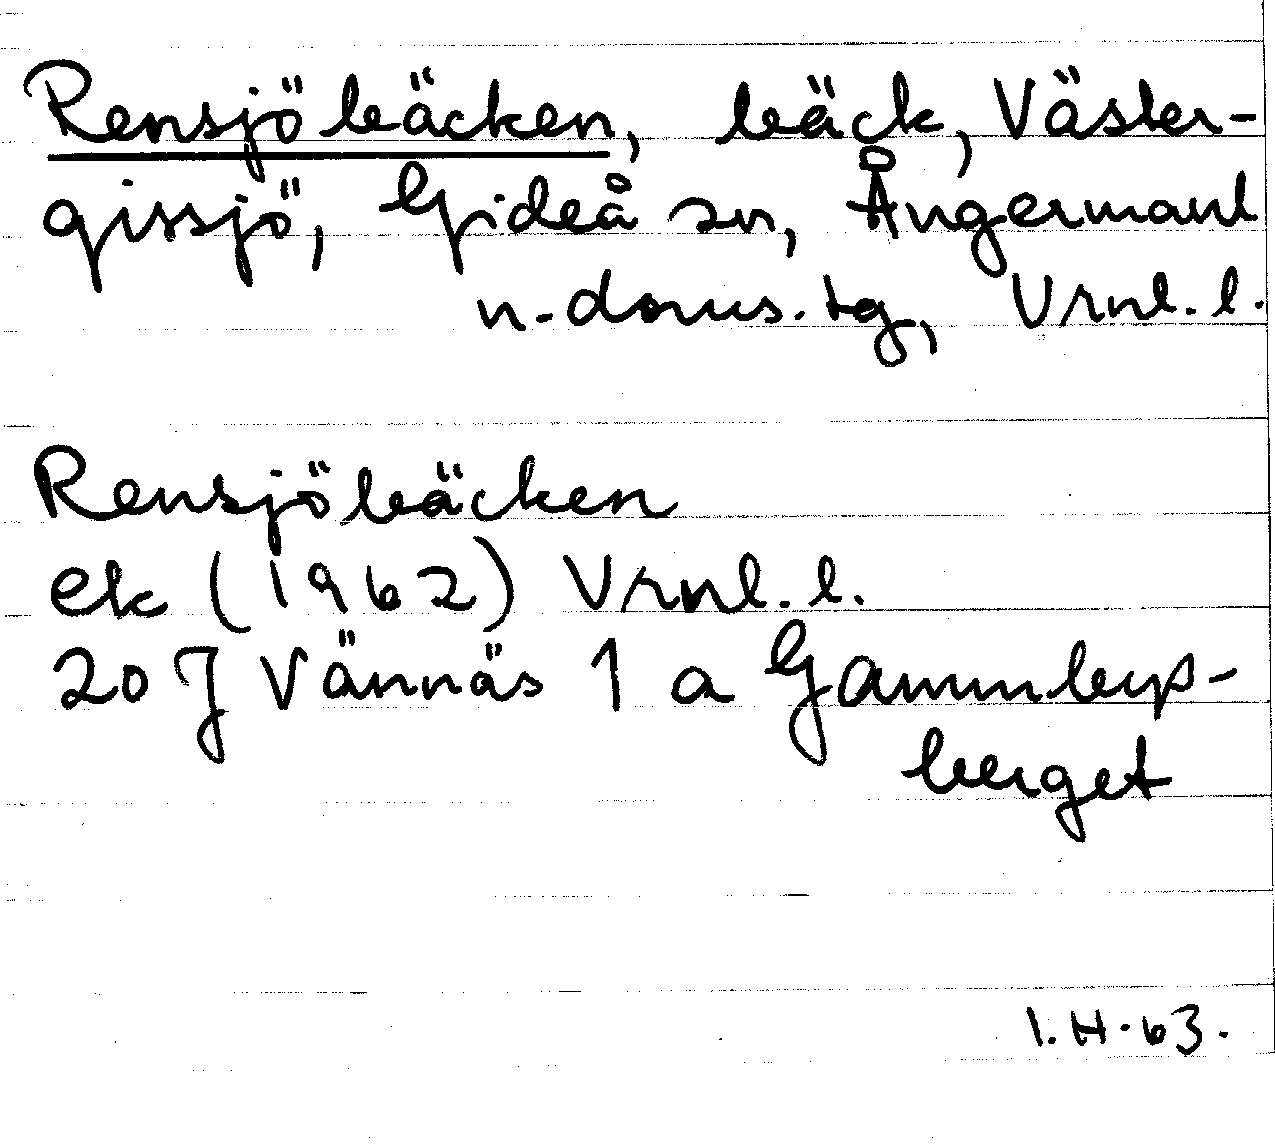 Rensjöbäcken, bäck, Väster-
gissjö, Gideå sn, Ångermanl
n. doms. tg, Vrnl. l.
Rensjöbäcken
ek (1962) Vrnl. l.
20 J Vännäs 1 a Gammbyn-
berget
I.H.63.